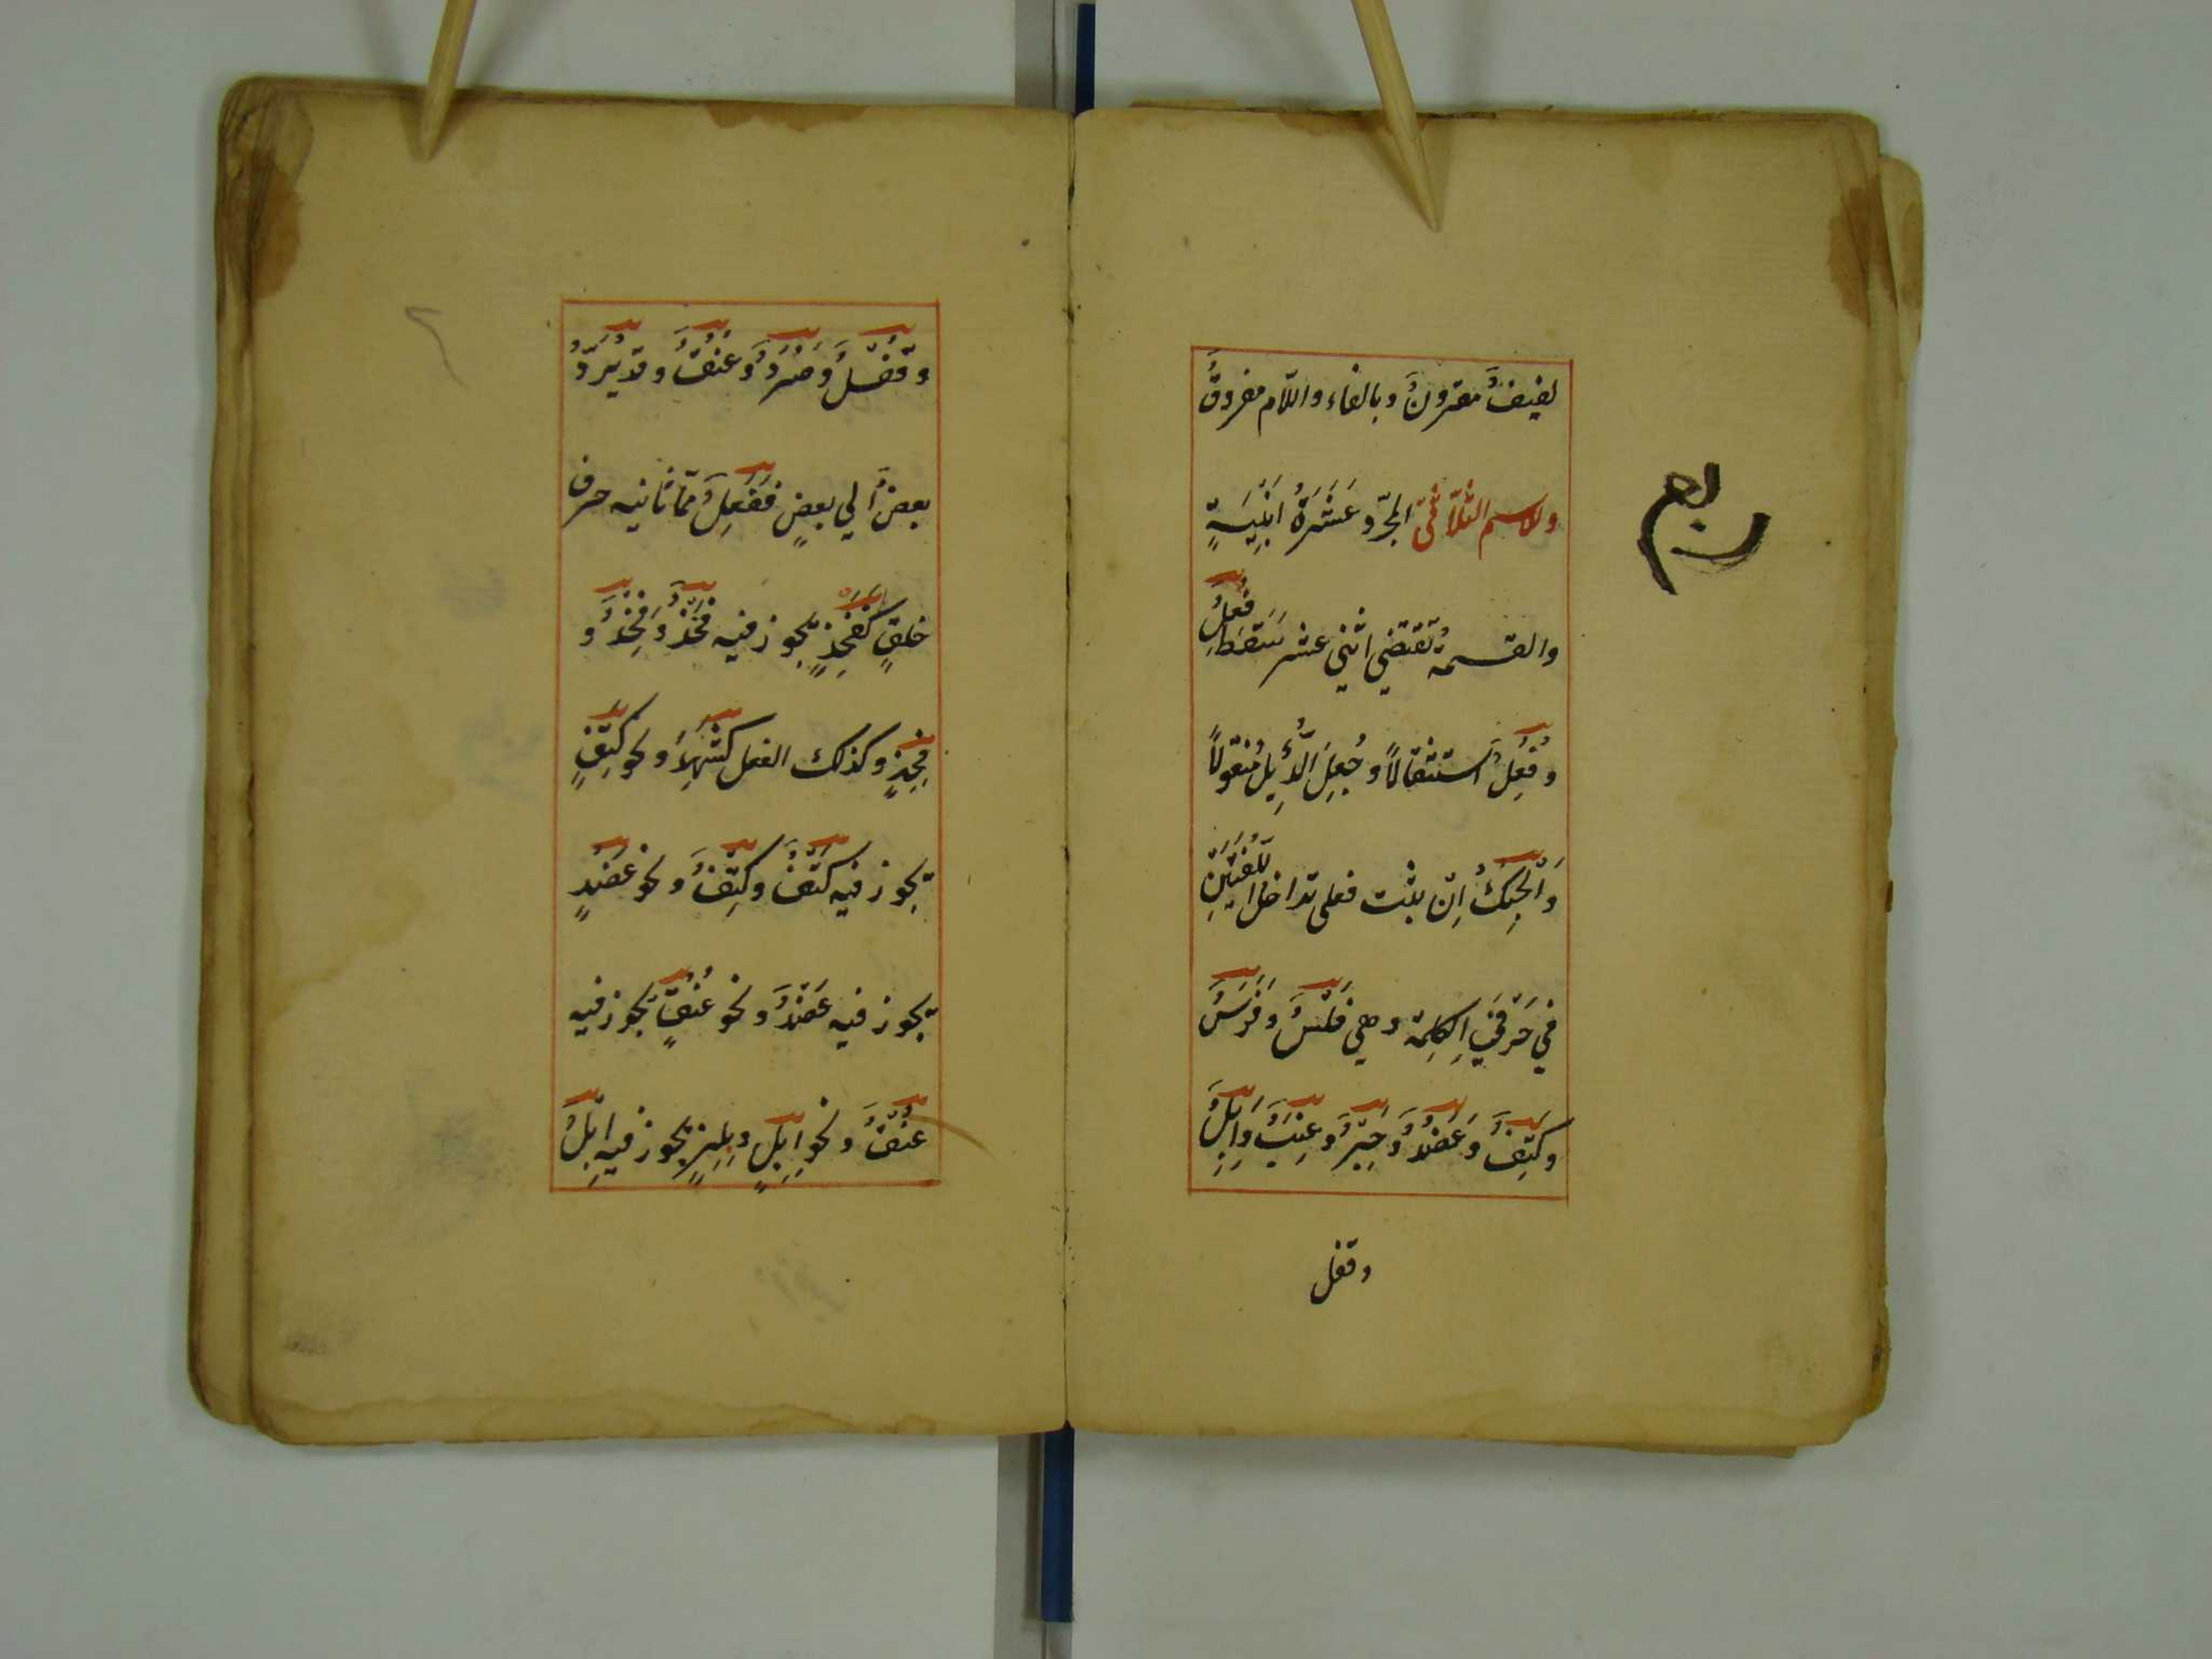 لفيفٌ مقرونٌ وبالفاء واللّام مفروقٌ
وللاسم الثّلاثيّ المجرّد عَشَرَةُ ابْنِيَةٍ
والقسمةُ تقتضي اثني عشر سَقَطَ فُعِلٌ
وفِعُلٌ استثقالاً وجُعِلَ الدُّئِلُ منقولاً
وَالْحِبُكُ اِنْ ثبت فعلى تداخل اللّغتَيْنِ
في حَرْفَيِ الكلِمة وهي فَلْسٌ وَفَرَسٌ
وكَتِفٌ وعَضُدٌ وحِبْرٌ وعِنَبٌ وَاِبِلٌ
وقفل
وقُفْلٌ وصُرَدٌ وعُنُقٌ وقد يُرَدُّ
بعضٌ الي بعضٍ ففَعِلٌ ممّا ثانيه حرف
حلقٍ كفَخِذٍ يجوز فيه فَخْذٌ وفِخْذٌ و
فِخِذٍ وكذلك الفعل كشَهِدَ ونحو كَتِفٍ
يجوز فيه كَتْفٌ وكِتْفٌ ونحو عَضُدٍ
يجوز فيه عَضْدٌ ونحو عُنُقٍ يجوز فيه
عُنْقٌ ونحو اِبِلٍ وبِلِزٍ يجوز فيه اِبْلٌ